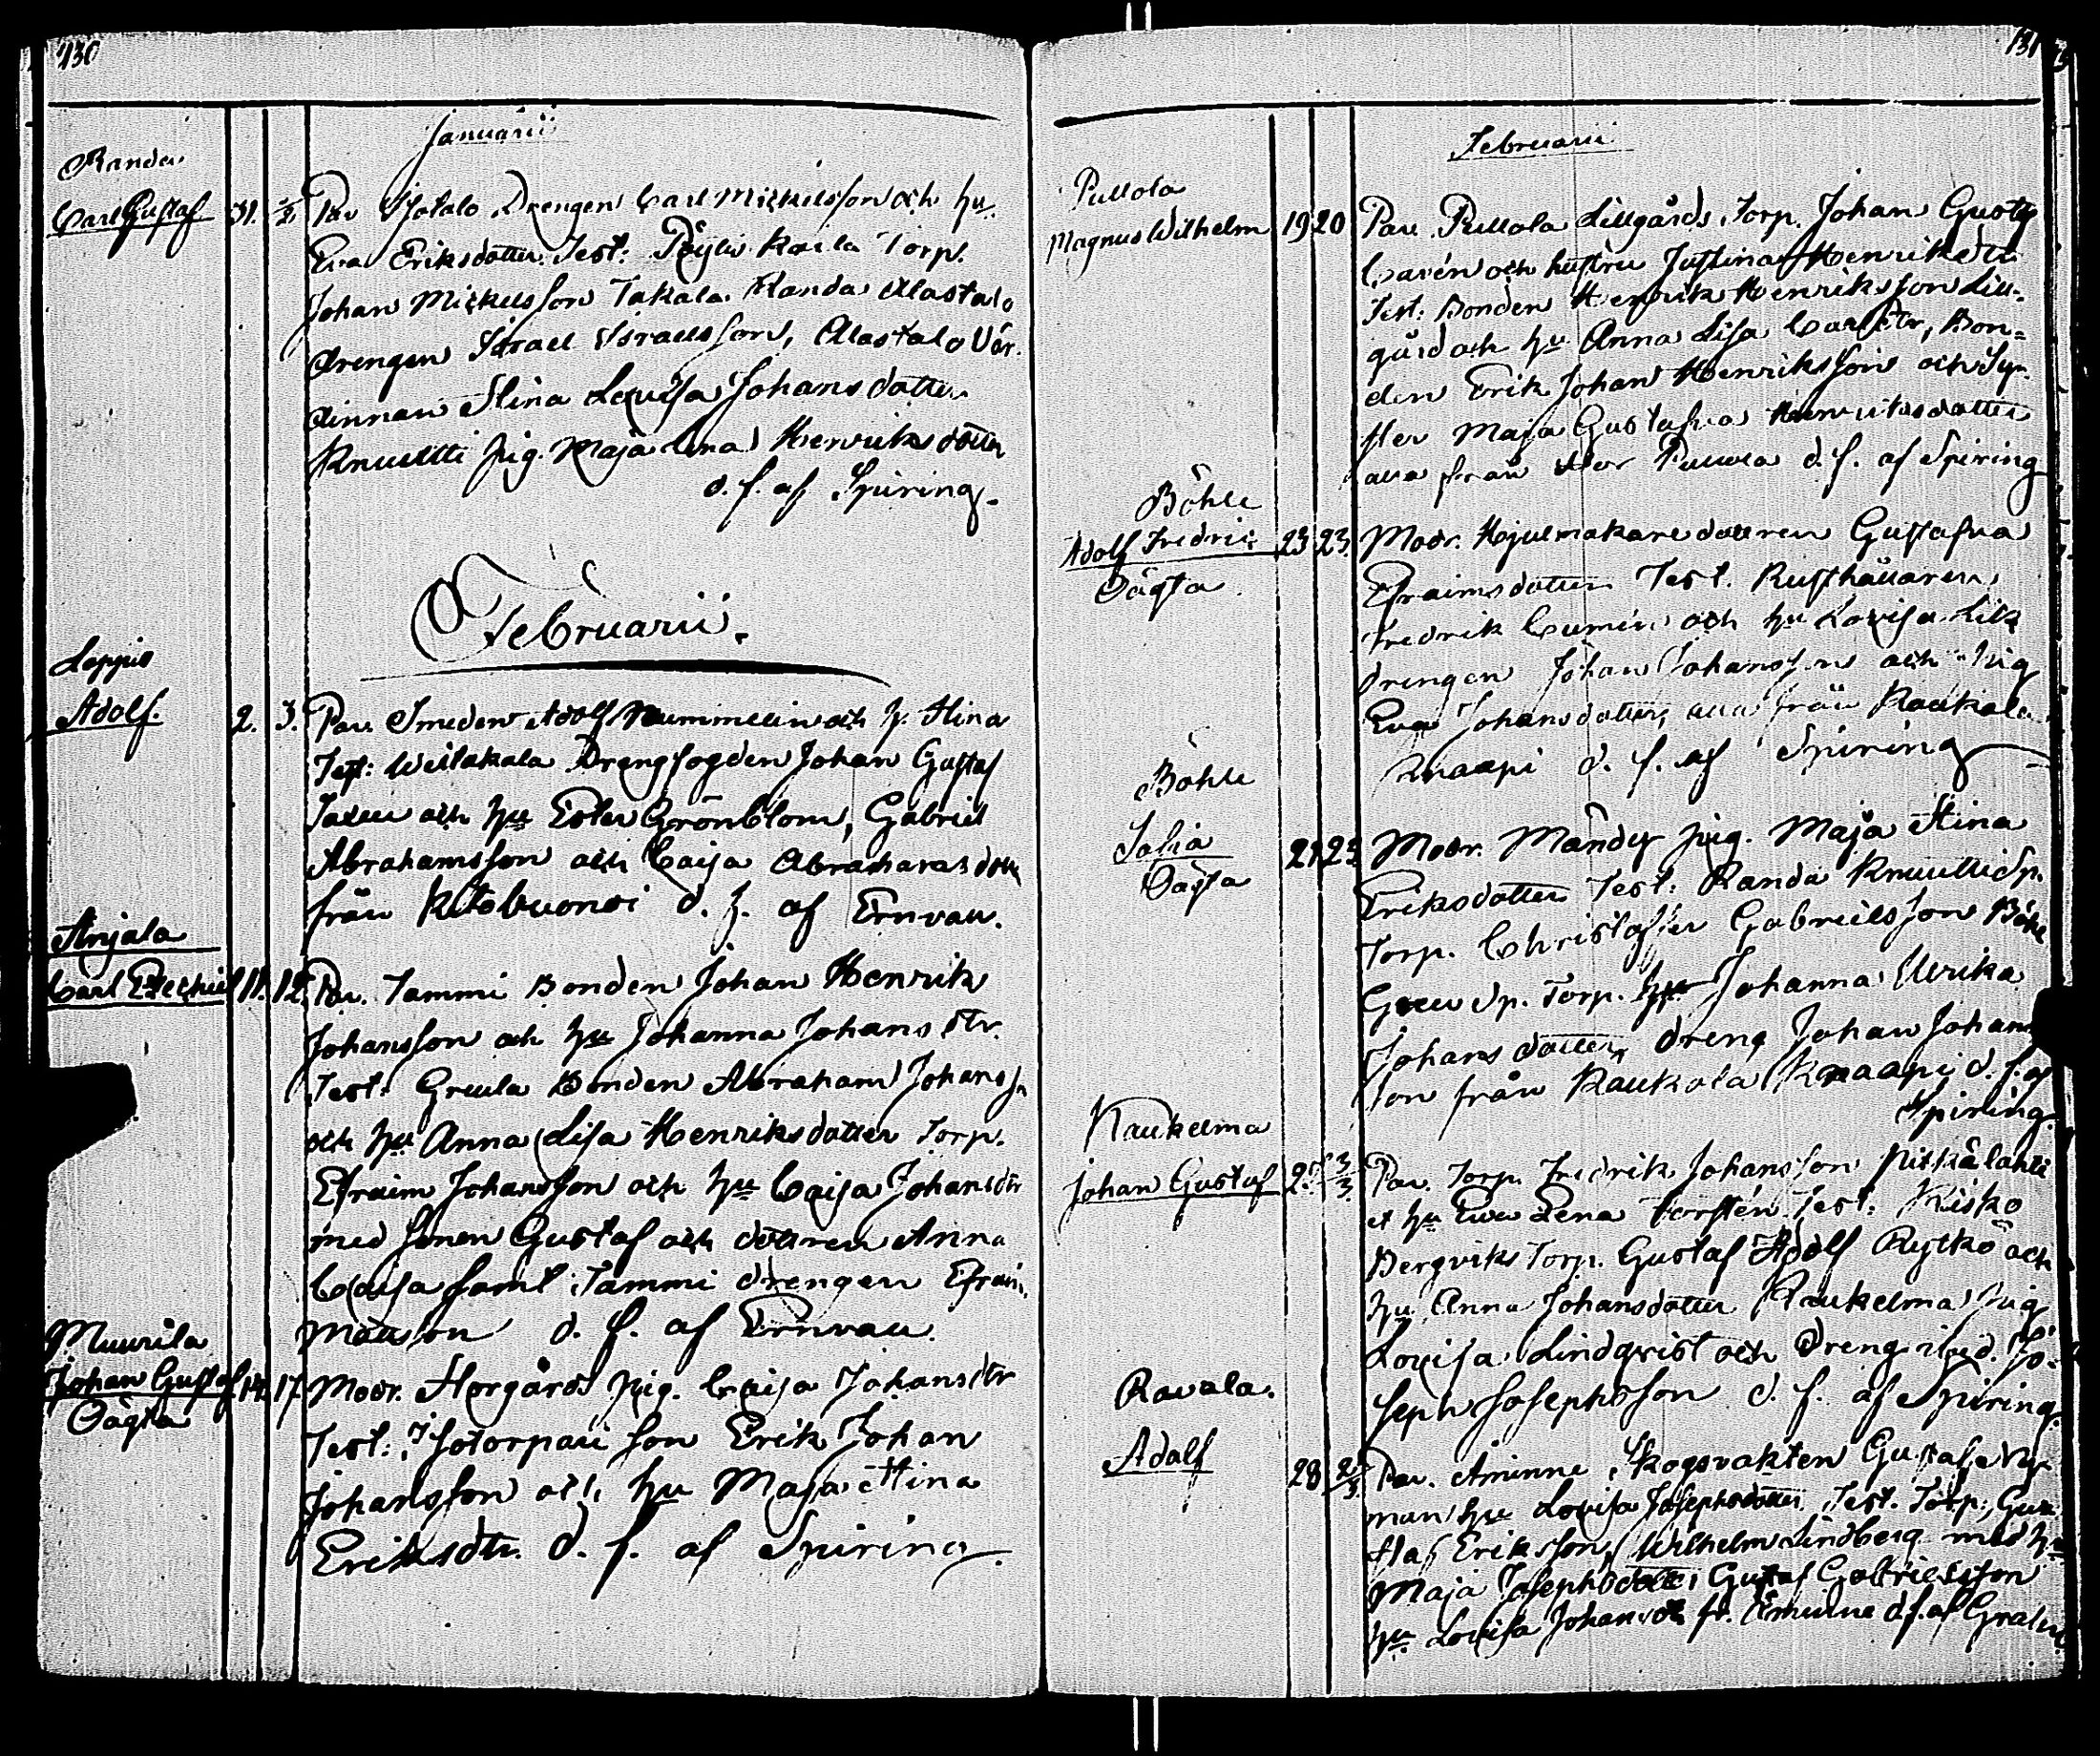 130
Januarii
Randa
Carl Gustaf 31. 2/2 Par Ylotalo Drengen Carl Mickelsson och hu.
Eva Eriksdotter. Test: Kaila Torp.
Johan Mickelsson Takala. Randa Alastalo
drengen Israel Israelsson, Alastalo Vär-
dinnan Stina Lovisa Johansdotter
Knuutti pig. Maja Lena Henriksdotter
d. f. af Spiring.
Februarii.
Lappio
Adolf. 2. 3. Par. Smeden Adolf Nummelin och h. Stina
Test: Weitakala Drengfogden Johan Gustaf
och hu Ester Grönblom, Gabriel
Abrahamsson och Caisa Abrahamsdotter
från d. f. af Ernvall.
Anjala
Carl Ezechiel 11. 12. Par. Tammi Bonden Johan Henrik
Johansson och hu Johanna Johansdtr.
Test: Greula Bonden Abraham Johanss
och hu Anna Lisa Henriksdotter Torp.
Efraim Johansson och hu Caisa Johansdtr
med sonen Gustaf och dottren Anna
Caisa samt Tammi drengen Efraim
Mattson d. f. af Ernvall.
Muurila
Johan Gustaf 14. 17. Modr. Storgårds pig. Caisa Johansdtr
Oägta
Test: Isotorpari son Erik Johan
Johansson och hu Maja Stina
Eriksdtr. d. f. af Spiring.
131
Februarii
Pullola
Magnus Wilhelm 19 20 Par. Pullola Lillgårds Torp. Johan Gustaf
Carén och hustru Justina Henriksdtr
Test: Bonden Henrik Henriksson Lill-
gård och hu Anna Lisa Carlsdtr, Bon-
den Erik Johan Henriksson och Sy-
ster Maja Gustafva Henriksdotter
alla från Stor Pullola d. f. af Spiring
Böhle
Adolf Fredric 23 23. Modr. Hjulmakare dottren Gustafva
Oägta
Efraimsdotter Test. Rusthållaren
Fredrik Cumén och hu Lovisa Lilk
drengen Johan Johansson och Pig
Eva Johansdotter, alla från Kaukola
Knaapi d. f. af Spiring
Böhle
Sofia 21 23 Modr. Mandes pig. Maja Stina
Oägta
Eriksdotter Test: Randa Knuutti Sp.
Torp. Christoffer Gabrielsson Böhle
Grels Sp. Torp. hu Johanna Ulrika
Johansdotter, dreng Johan Johans-
son från Kaukola Knaapi d. f. af
Spiring.
Raukelma
Johan Gustaf 25 3/3. Par. Torp. Fredrik Johansson Pitkälahti
et hu Eva Lena Forstén Test: Kisko
Bergviks Torp. Gustaf Adolf Rytkö och
hu Anna Johansdotter Raukelma Pig
Lovisa Lindqvist och Dreng ibid. Jo-
seph Josephsson d. f. af Spiring.
Ravala.
Adolf 28 2/3. Par. Åminne Skogsvakten Gustaf Ny-
man hu Lovisa Josephsdotter Test. Torp: Gus-
taf Eriksson, Wilhelm Lindberg med hu
Maja Josephsdotter, Gustaf Gabrielsson
hu Lovisa Johansdr fr. Åminne d. f. af